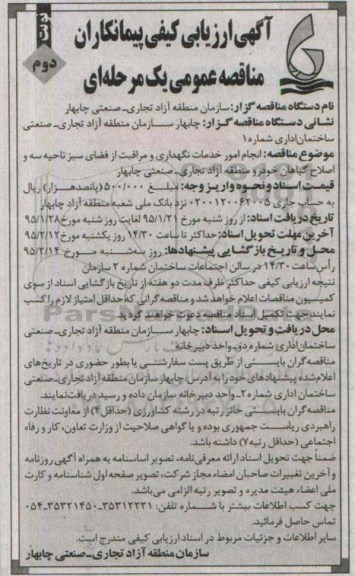 نوبت دوم
آگهی ارزیابی کیفی پیمانکاران
مناقصه عمومی یک مرحله‌ای
نام دستگاه مناقصه گزار: سازمان منطقه آزاد تجاری-صنعتی چابهار
نشانی دستگاه مناقصه گزار: چابهار سازمان منطقه آزاد تجاری- صنعتی
ساختمان اداری شماره ۱
موضوع مناقصه: انجام امور خدمات نگهداری و مراقبت از فضای سبز ناحیه سه و
اصلاح گیاهان خودرو منطقه آزاد تجاری- صنعتی چابهار
قیمت اسناد و نحوه واریز وجه: مبلغ ۵۰۰/۰۰۰ (پانصد هزار) ریال
به حساب جاری ۰۲۰۰۱۲۰۰۶۲۰۰۵ نزد بانک ملی شعبه منطقه آزاد چابهار
تاریخ دریافت اسناد: از روز شنبه مورخ ۹۵/۱/۲۱ لغایت روز شنبه مورخ ۹۵/۱/۲۸
آخرین مهلت تحویل اسناد: حداکثر تا ساعت ۱۴/۳۰ روز یکشنبه مورخ ۹۵/۲/۱۲
محل و تاریخ بازگشایی پیشنهادها: روز سه‌شنبه مورخ ۹۵/۲/۱۴
رأس ساعت ۱۴/۳۰ در سالن اجتماعات ساختمان شماره ۲ سازمان
نتیجه ارزیابی کیفی حداکثر ظرف مدت دو هفته از تاریخ بازگشایی اسناد از سوی
کمیسیون مناقصات اعلام خواهد شد و مناقصه گرانی که حداقل امتیاز لازم را کسب
نمایند جهت تکمیل اسناد مناقصه دعوت خواهند گردید.
محل دریافت و تحویل اسناد: چابهار سازمان منطقه آزاد تجاری-صنعتی
ساختمان اداری شماره دو- واحد دبیرخانه
مناقصه گران بایستی از طریق پست سفارشی یا بطور حضوری در تاریخ‌های
اعلام شده پیشنهادهای خود را به آدرس: چابهار سازمان منطقه آزاد تجاری-صنعتی
ساختمان اداری شماره ۲- واحد دبیرخانه سازمان داده و رسید دریافت نمایند.
مناقصه گران بایستی حائز رتبه در رشته کشاورزی (حداقل ۴) از معاونت نظارت
راهبردی ریاست جمهوری بوده و یا گواهی صلاحیت از وزارت تعاون، کار و رفاه
اجتماعی (حداقل رتبه ۷) داشته باشد.
ضمناً جهت تحویل اسناد ارائه معرفی نامه، تصویر اساسنامه به همراه آگهی روزنامه
و آخرین تغییرات صاحبان امضاء مجاز شرکت، تصویر صفحه اول شناسنامه و کارت
ملی اعضاء هیئت مدیره و تصویر رتبه الزامی می‌باشد.
جهت کسب اطلاعات بیشتر با شماره تلفن: ۳۵۳۱۲۲۳۱-۳۵۳۲۱۴۵۰-۰۵۴
تماس حاصل فرمائید.
سایر اطلاعات و جزئیات مربوط در اسناد ارزیابی کیفی مندرج است.
سازمان منطقه آزاد تجاری-صنعتی چابهار